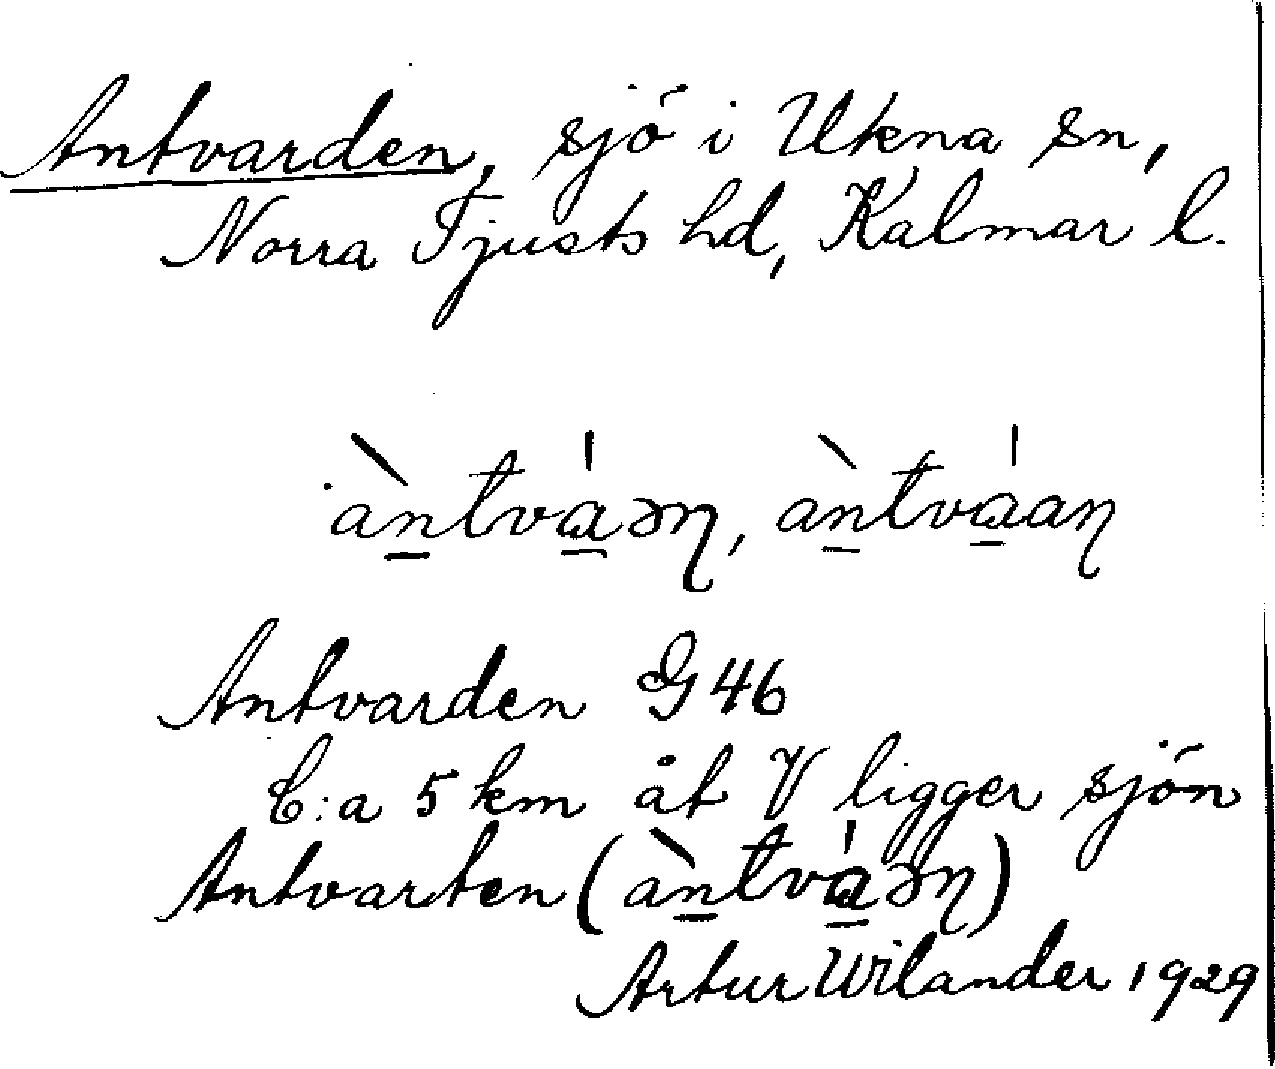 Antvarden, sjö i Ukna sn,
Norra Tjusts hd, Kalmar l.
àn̲tvá̲əɳ, àn̲tvá̲aɳ
Antvarden G 46
C:a 5 km åt V ligger sjön
Antvarten (àn̲tvá̲əɳ)
Artur Wilander 1929